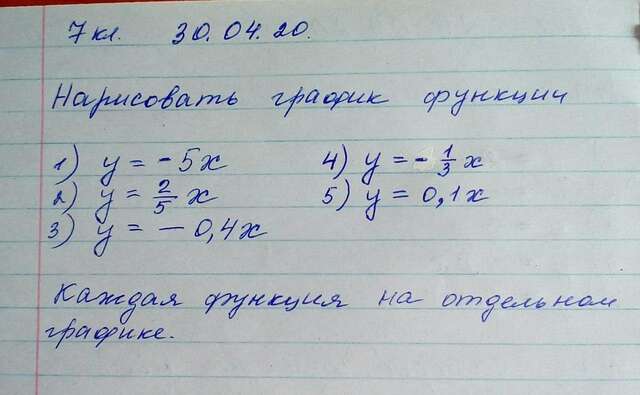 7 кл. 30.04.20.
Нарисовать график функции
1) y = -5x 4) y = - 1/3 x
2) y = 2/5 x 5) y = 0,1x
3) y = - 0,4x
Каждая функция на отдельном
графике.